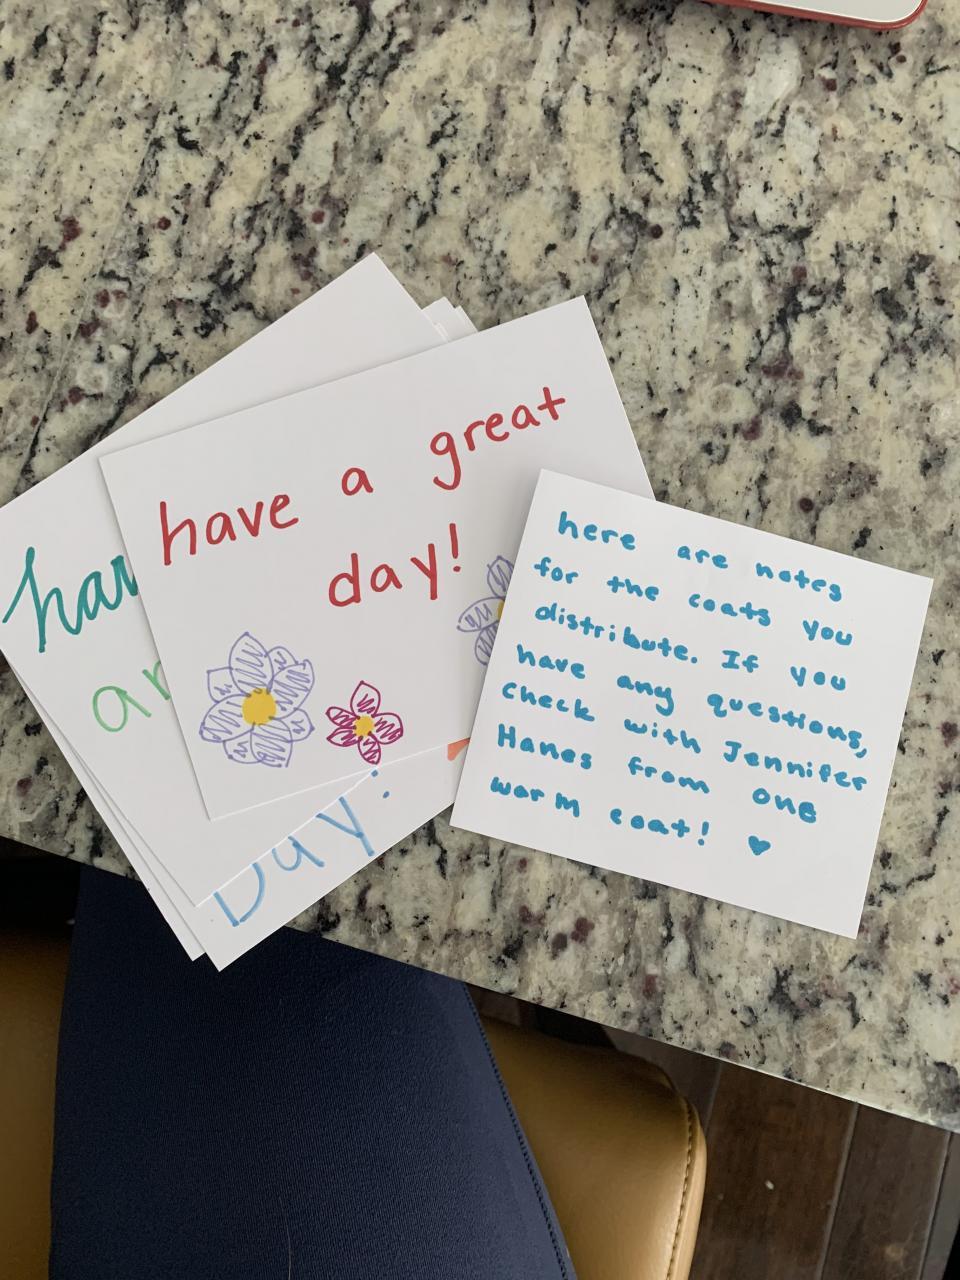 have a great
day!
here are notes
for the coats you
distribute. If you
have any questions,
check with Jennifer
Hanes from one
warm coat! ♥
Day.